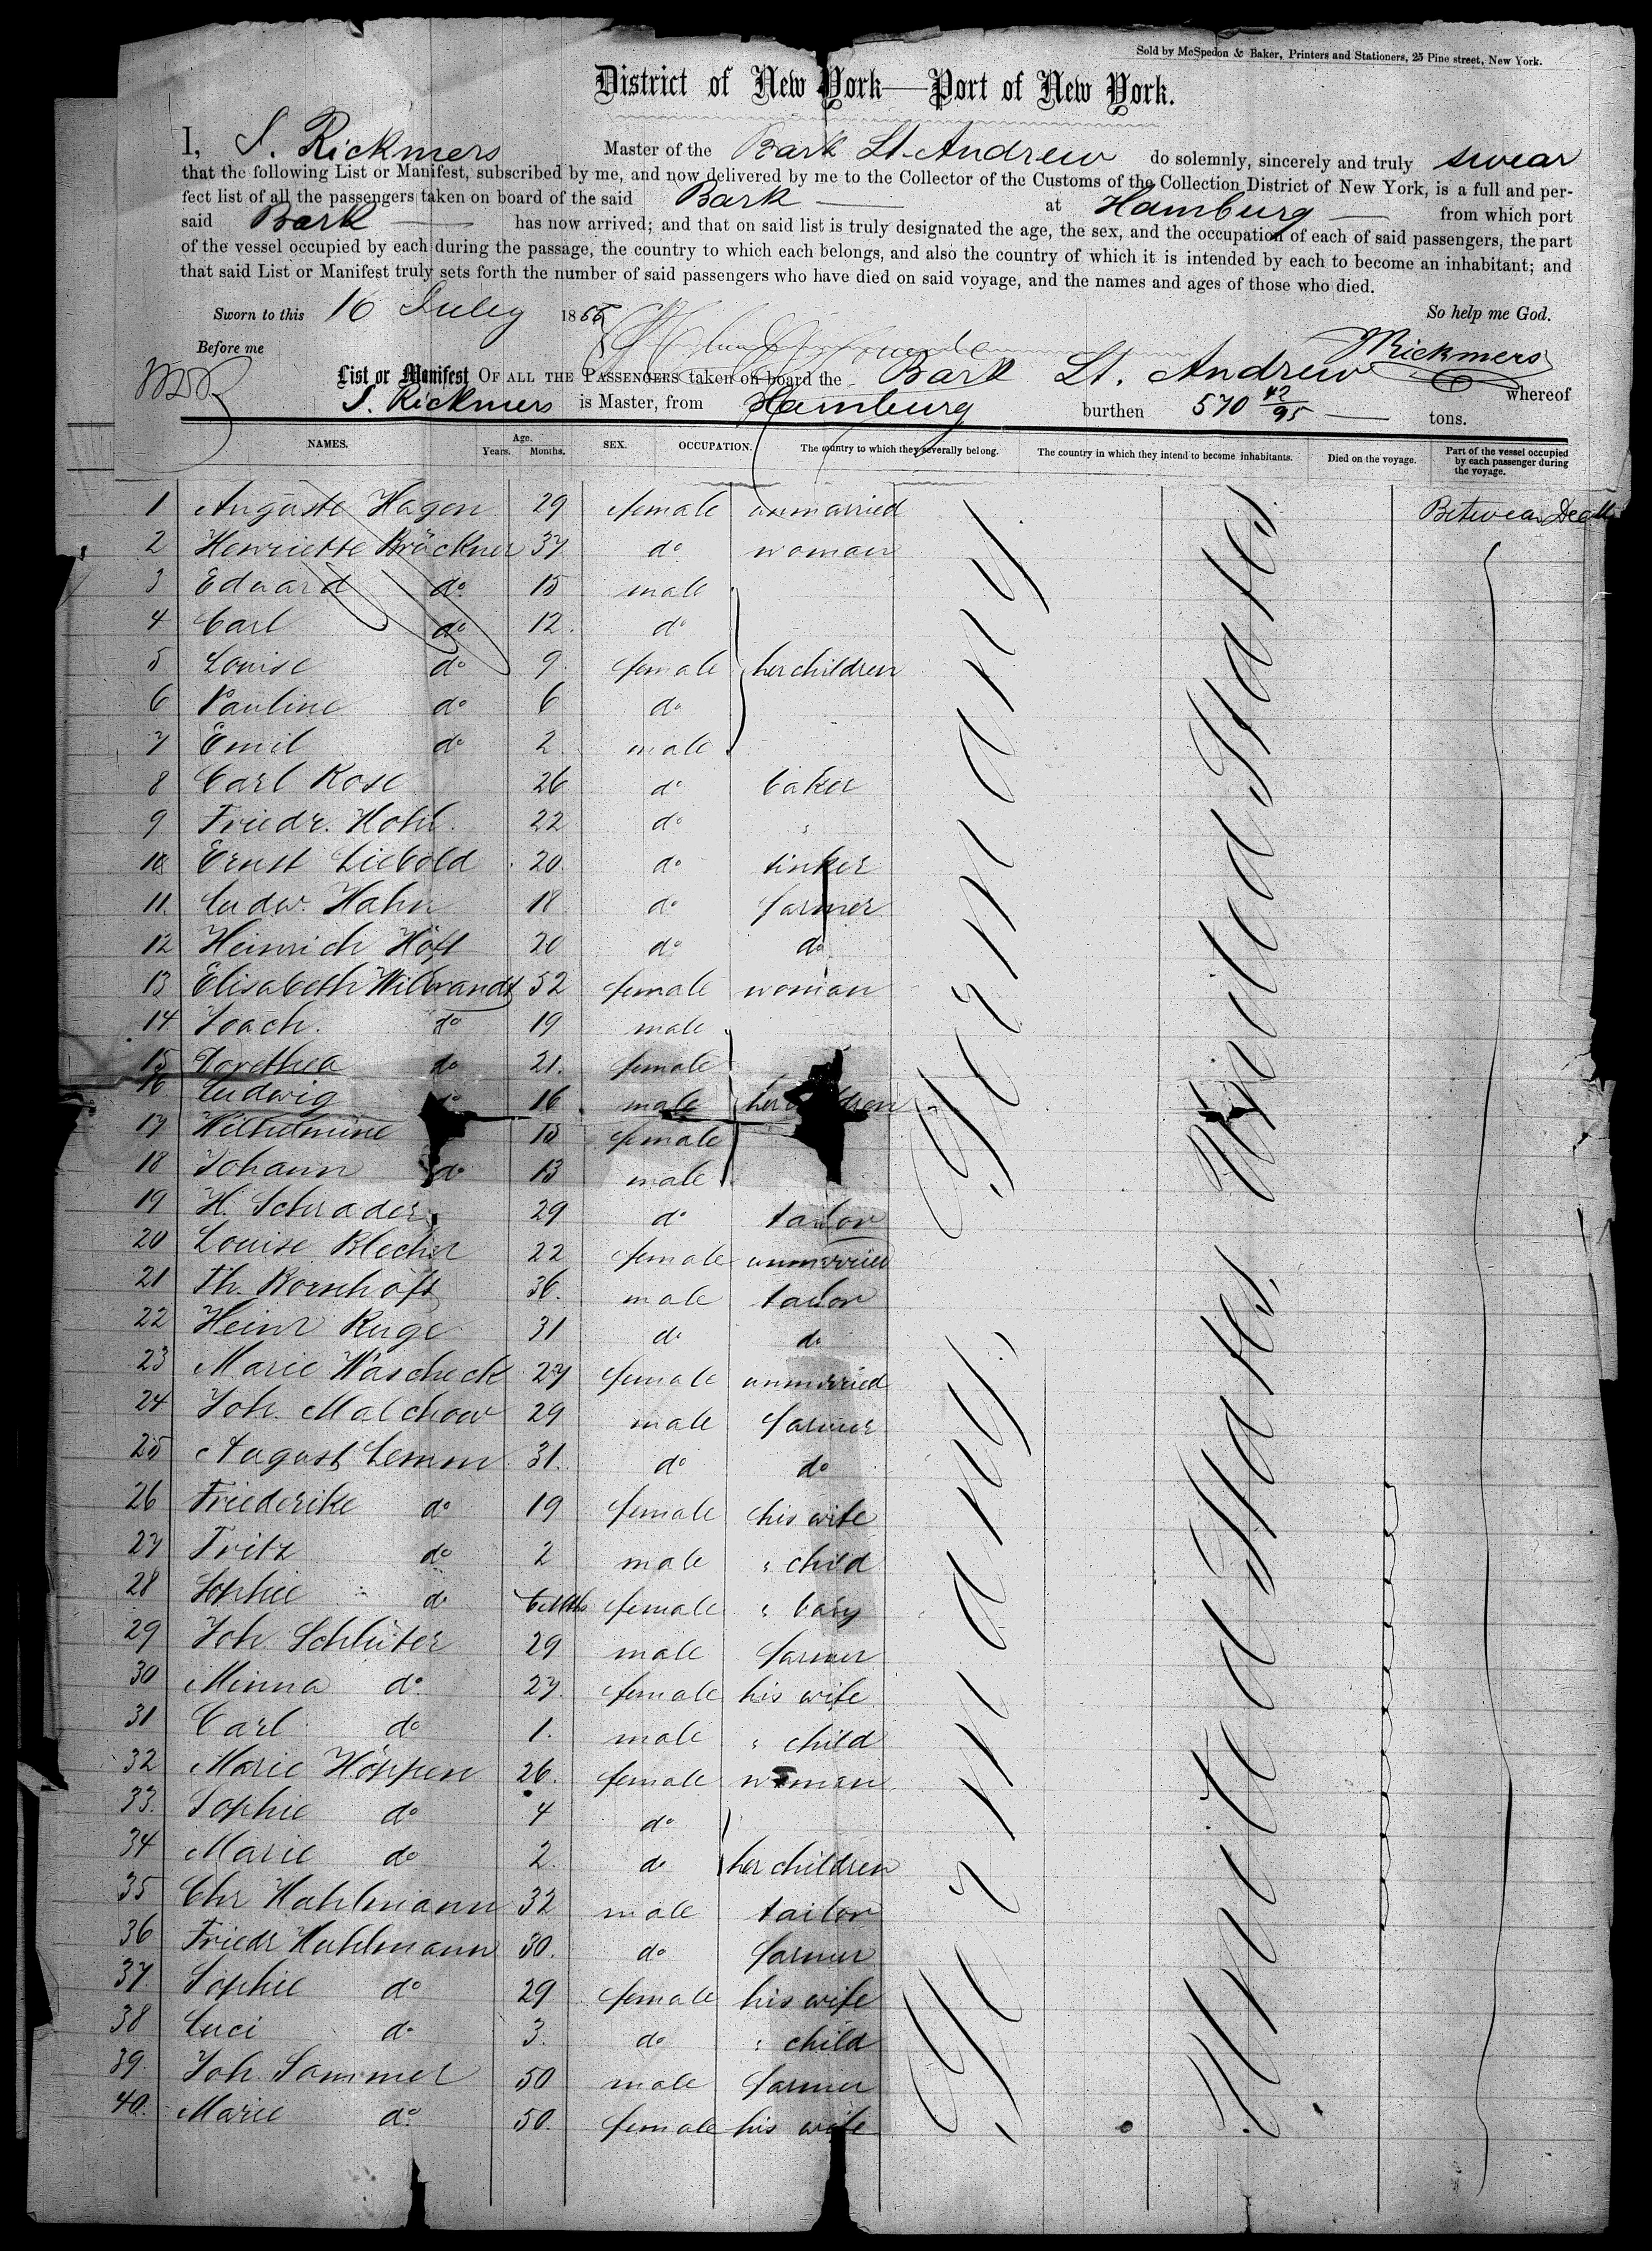 Sold by McSpedon & Baker, Printers and Stationers, 25 Pine street, New York.
District of New York—Port of New York.
I, S. Rickmers Master of the Bark St. Andrew do solemnly, sincerely and truly swear
that the following List or Manifest, subscribed by me, and now delivered by me to the Collector of the Customs of the Collection District of New York, is a full and per-
fect list of all the passengers taken on board of the said Bark at Hamburg from which port
said Bark has now arrived; and that on said list is truly designated the age, the sex, and the occupation of each of said passengers, the part
of the vessel occupied by each during the passage, the country to which each belongs, and also the country of which it is intended by each to become an inhabitant; and
that said List or Manifest truly sets forth the number of said passengers who have died on said voyage, and the names and ages of those who died.
Sworn to this 16 July 18 So help me God.
Before me Rickmers
List or Manifest OF ALL THE PASSENGERS taken on board the Bark St. Andrew whereof
S. Rickmers is Master, from Hamburg burthen 570 42/95 tons.
NAMES. Age. Years. Months. SEX. OCCUPATION. The country to which they severally belong. The country in which they intend to become inhabitants. Died on the voyage. Part of the vessel occupied by each passenger during the voyage.
1 Auguste Hagen 29 female unmarried Between Deck
2 Henriette Brückner 37 do woman
3 Eduard do 15 male
4 Carl do 12. do
5 Louise do 9. female her children
6 Pauline do 6 do
7 Emil do 2. male
8 Carl Rose 26 do baker
9 Friedr. Hohl. 22 do "
10 Ernst Liebold 20. do tinker
11. Ludw. Hahn 18 do farmer
12 Heinrich Höft 20 do do
13 Elisabeth Wilbrandt 52 female woman
14 Joach. do 19 male
15 Dorethea do 21. female
16 Ludwig do 16 male her children
17 Wilhelmine 15 female
18 Johann do 13 male
19 H. Schrader 29 do tailor
20 Louise Blecher 22 female unmarried
21 Th. Bornhöft 36. male tailor
22 Heinr Ruge 31 do do
23 Marie Wascheck 27 female unmarried
24 Joh. Malchow 29 male farmer
25 August Lemm 31. do do
26 Friederike do 19 female his wife
27 Fritz do 2 male " child
28 Sophie do 6 Mths female " baby
29 Joh. Schlüter 29 male farmer
30 Minna do 27. female his wife
31 Carl do 1. male " child
32 Marie Höppen 26. female woman
33. Sophie do 4 do
34 Marie do 2. do her children
35 Chr Hahlmann 32 male tailor
36 Friedr Huhlmann 30. do farmer
37. Sophie do 29 female his wife
38 Luci do 3. do " child
39. Joh. Sommer 50 male farmer
40. Marie do 50. female his wife
Germany.
United States
Germany.
United States